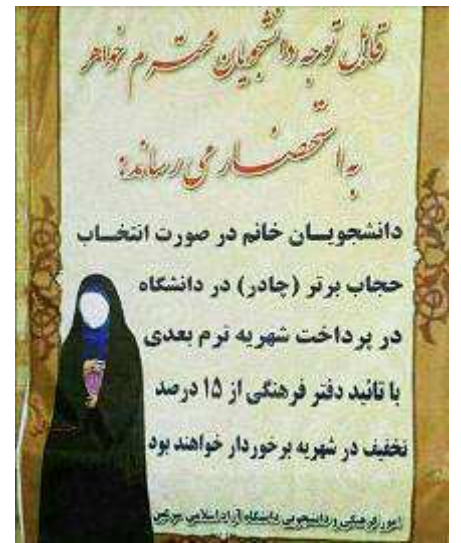 قابل توجه دانشجویان محترم خواهر
به استحضار می رساند:
دانشجویان خانم در صورت انتخاب
حجاب برتر (چادر) در دانشگاه
در پرداخت شهریه ترم بعدی
با تائید دفتر فرهنگی از ۱۵ درصد
تخفیف در شهریه برخوردار خواهند بود
امور فرهنگی و دانشجویی دانشگاه آزاد اسلامی